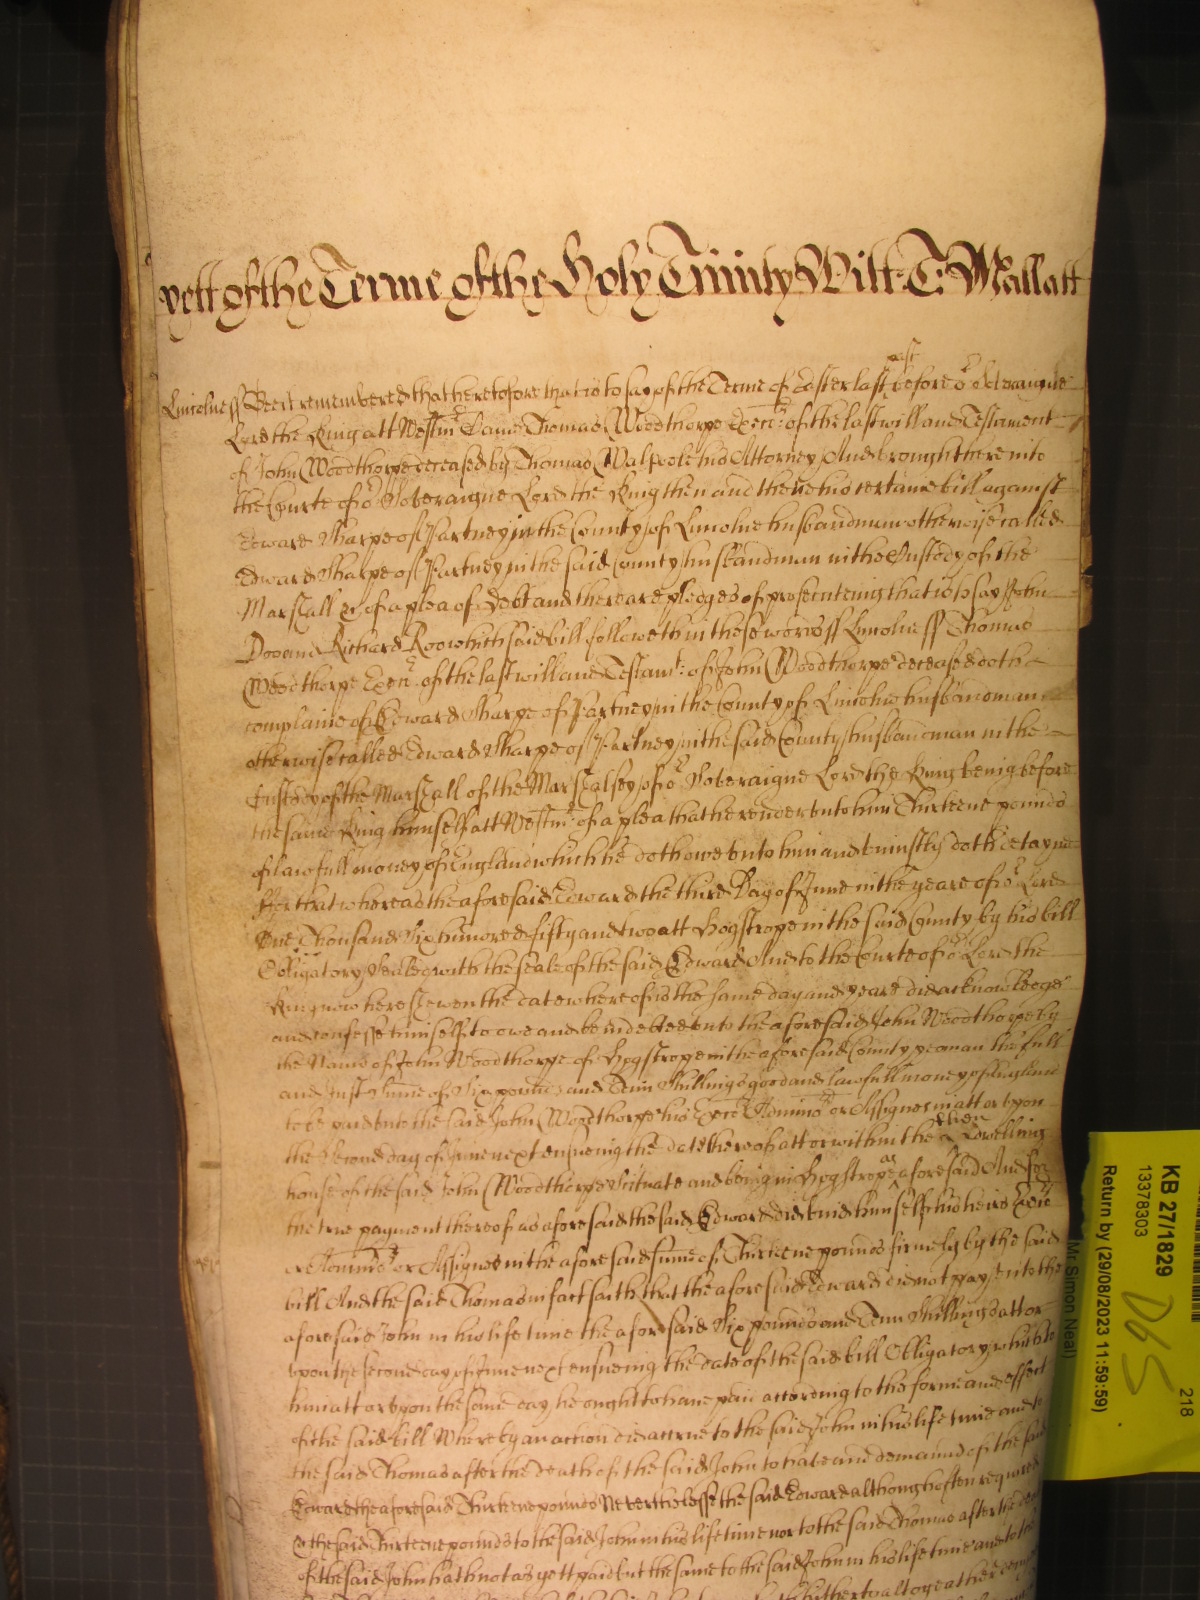 yett of the Terme of the Holy Trinity Witt: T: Mallatt
past
Lincolne ss Bee it remembered that heretofore that is to say of the Terme of Easter last before or Soveraigne
Lord the King att Westmr Came Thomas Woodthorpe Execr: of the last will and Testament
of John Woodthorpe deceased by Thomas Walpole his Attorney And brought here into
the Courte of or Soveraigne Lord the King then and there his certaine bill against
Edward Sharpe of Partney in the County of Lincolne husbandman otherwise called
Edward Sharpe of Partney in the said County husbandman in the Custody of the
Marshall &c of a plea of Debt and there are pledges of prosecuteing that is to say John
Doo and Richard Roo which said bill followeth in these words ss Lincoln ss Thomas
Woodthorpe Execr of the last will and Testamt: of John Woodthorpe deceased doth
complaine of Edward Sharpe of Partney in the County of Lincolne husbandman
otherwise called Edward Sharpe of Partney in the said County husbandman in the
Custody of the Marshall of the Marshalsey of or Soveraigne Lord the King being before
the same King himself att Westmr: of a plea that he render unto him Thirteene pounds
of lawfull money of England which he doth owe unto him and uniustly doth detayne
For that whereas the aforesaid Edward the third Day of June in the yeare of or Lord
One Thousand Six hundred fifty and two att Hogstrope in the said County by his bill
Obligatory Sealed with the seale of the said Edward And to the Courte of or Lord the
King now here shewen the date whereof is the same day and yeare did acknowledge
and confesse himself to owe and be indebted unto the aforesaid John Woodthorpe by
the Name of John Woodthorpe of Hogstrope in the aforesaid County yeoman the full
and iust Sume of Six pounds and Tenn Shillings good and lawfull money of England
to be paid unto the said John Woodthorpe his Execrs Adminrs or Assignes in att or upon
the Second day of June next ensueing the date thereof att or within the then dwelling
house of the said John Woodthorpe Scituate and being in Hogstrope as aforesaid And for
the true payment thereof as aforesaid the said Edward did bind himself his heires Execrs
or Adminrs or Assignes in the aforesaid sume of Thirteene pounds firmely by the said
bill And the said Thomas in fact saith that the aforesaid Edward did not pay unto the
aforesaid John in his life time the aforesaid Six pounds and Tenn Shillings att or
upon the second day of June next ensueing the date of the said bill Obligatory which to
him att or upon the same day he ought to have paid according to the forme and effect
of the said bill Whereby an action did accrue to the said John in his life time and to
the said Thomas after the death of the said John to have and demaund of the said
Edward the aforesaid Thirteene pounds Neverthelesse the said Edward although often required
the said Thirteene pounds to the said John in his life time nor to the said Thomas after the
of the said John hath not as yett paid but the same to the said John in his life time and to the
hitherto altogeather
KB 27/1829
13378303
Return by (29/08/2023 11:59:59)
Mr Simon Neal)
D6S
218